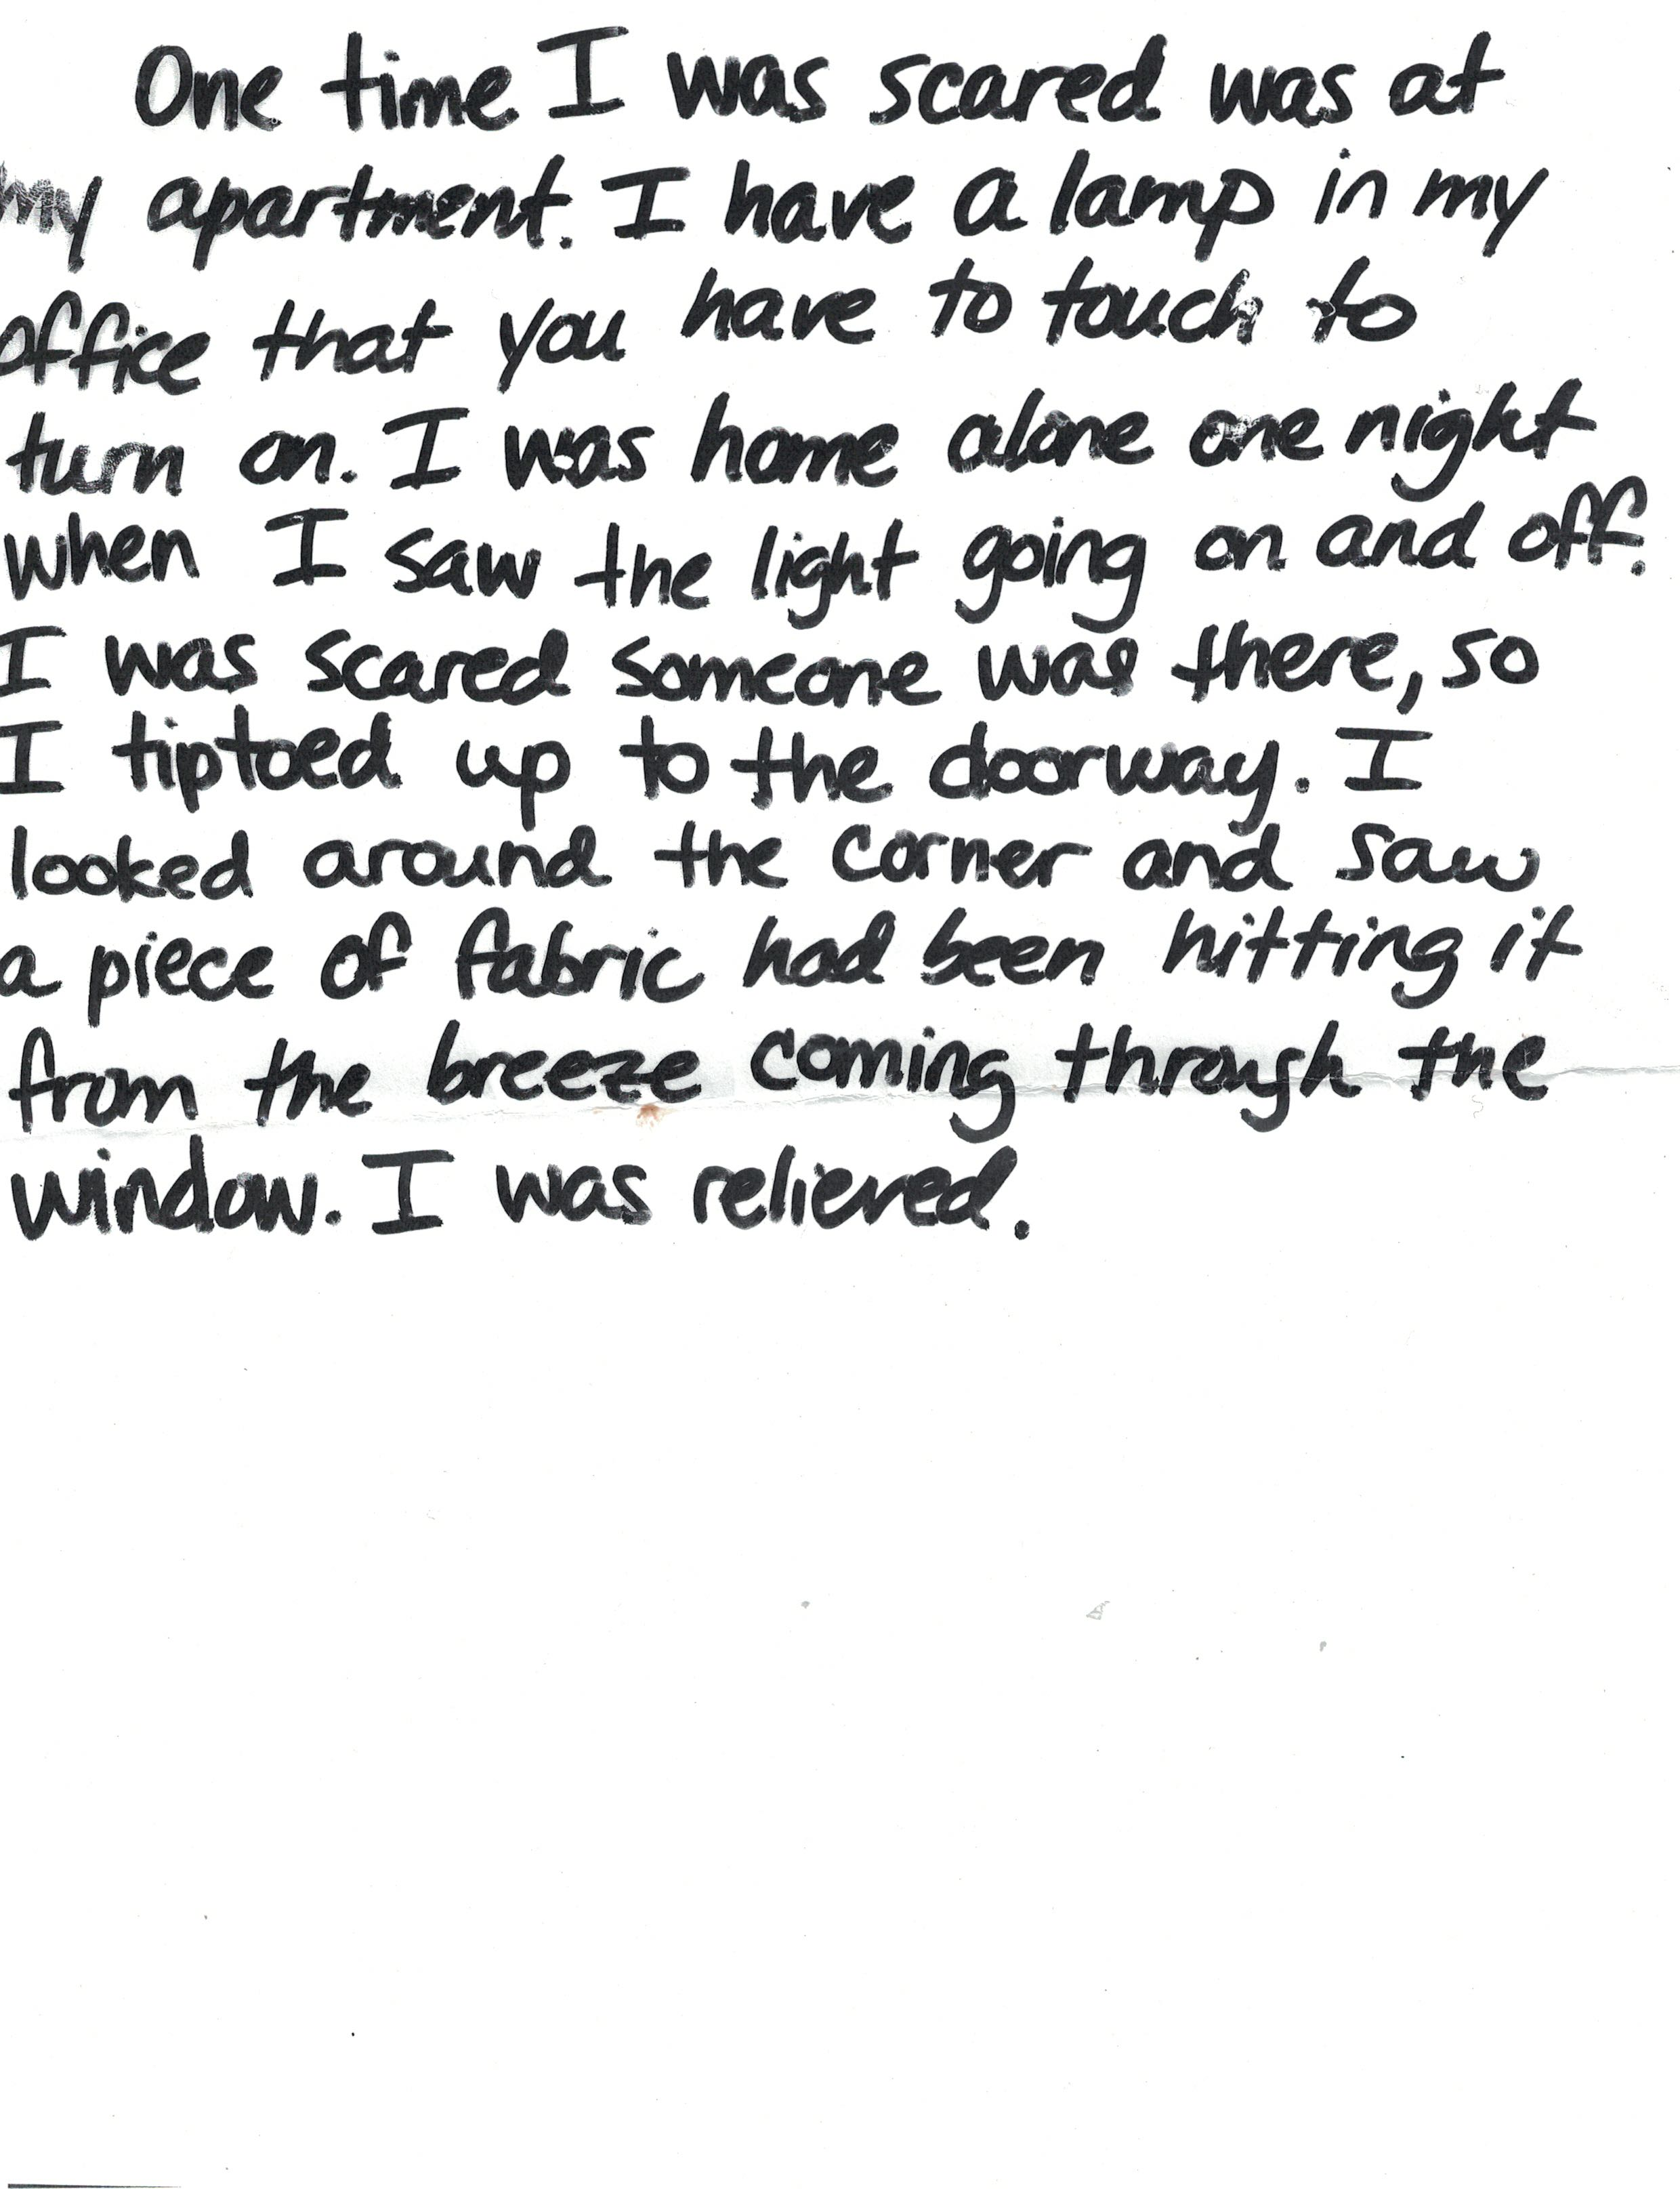 One time I was scared was at
my apartment. I have a lamp in my
office that you have to touch to
turn on. I was home alone one night
when I saw the light going on and off.
I was scared someone was there, so
I tiptoed up to the doorway. I
looked around the corner and saw
a piece of fabric had been hitting it
from the breeze coming through the
window. I was relieved.